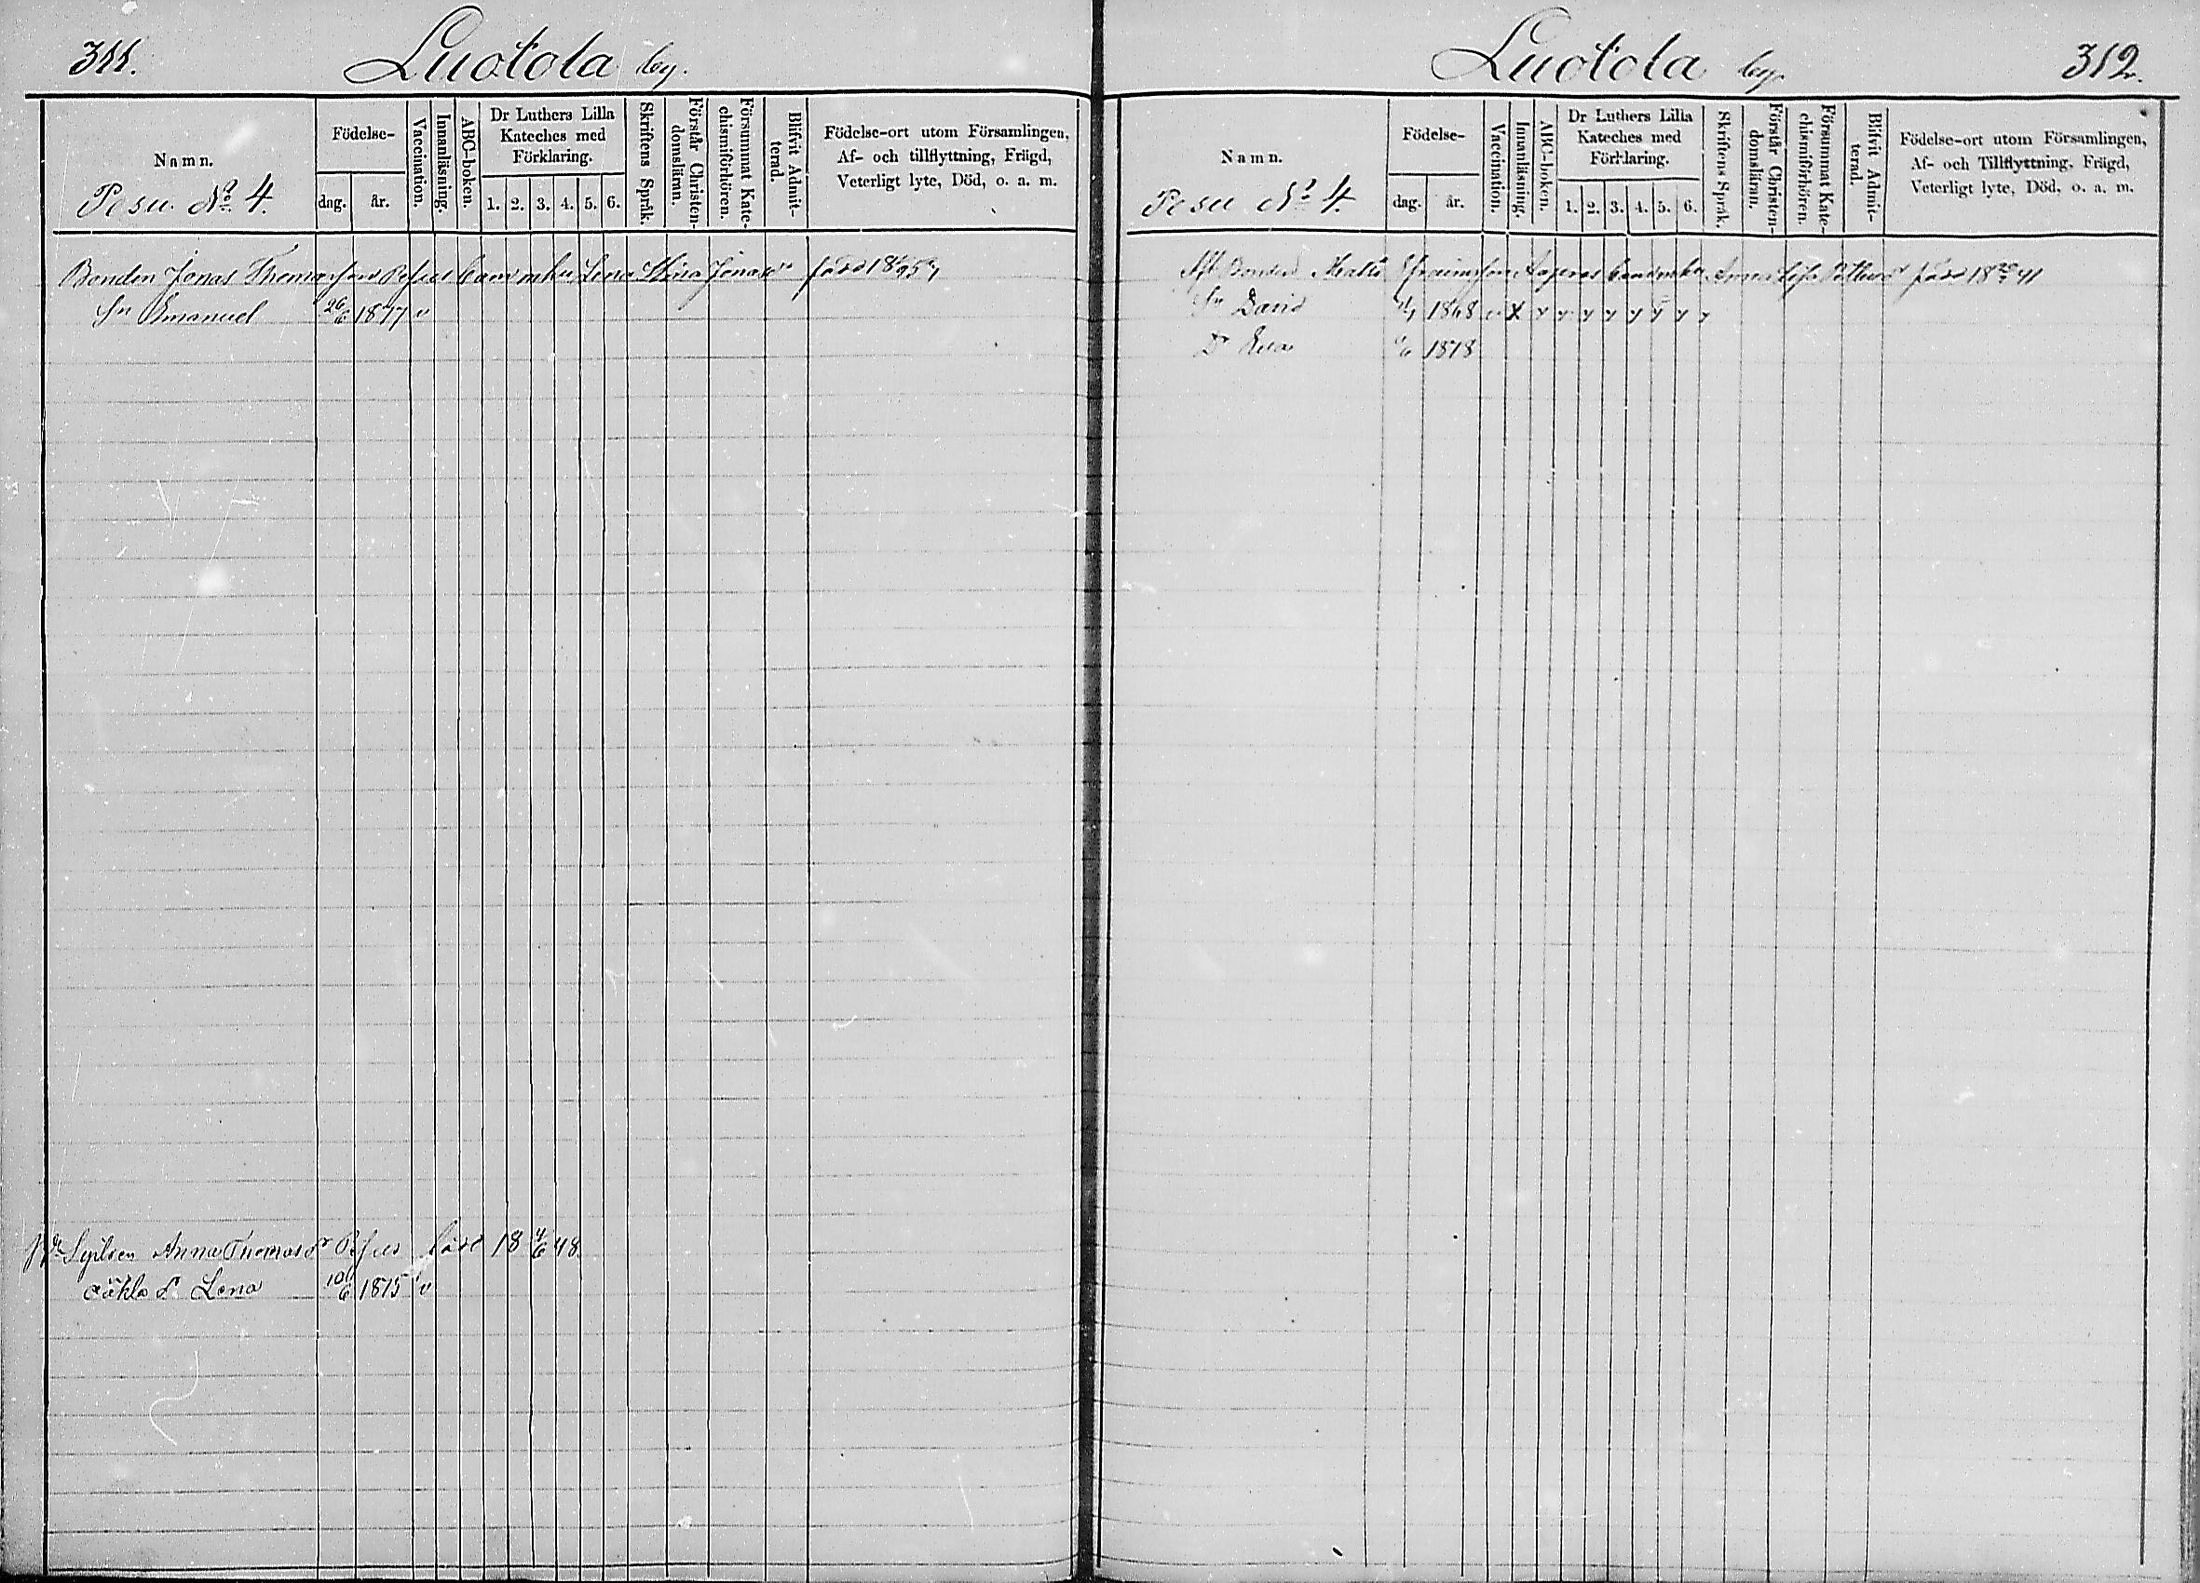 311.
Luotola by.
Namn.
Pesu No 4.
Födelse-
dag.
år.
Vaccination.
Innanläsning.
ABC-boken.
Dr Luthers Lilla
Kateches med
Förklaring.
1. 2. 3. 4. 5. 6.
Skriftens Språk.
Förstår Christen-
domsläran.
Försummat Kate-
chismiförhören.
Blifvit Admit-
terad.
Födelse-ort utom Församlingen,
Af- och tillflyttning, Frägd,
Veterligt lyte, Död, o. a. m.
Bonden Jonas Thomasson Barn m hu Lena Stina Jonas född
Sn Emanuel 26/6 1877 v
Anna Thomasdr född 18 48
oäkta Dr Lena 10/6 1875 v
Luotola by.
312.
Namn.
Pesu No 4.
Födelse-
dag.
år.
Vaccination.
Innanläsning.
ABC-boken.
Dr Luthers Lilla
Kateches med
Förklaring.
1. 2. 3. 4. 5. 6.
Skriftens Språk.
Förstår Christen-
domsläran.
Försummat Kate-
chismiförhören.
Blifvit Admit-
terad.
Födelse-ort utom Församlingen,
Af- och Tillflyttning. Frägd,
Veterligt lyte, Död, o. a. m.
Bonden Matts Anna Lisa född 41
Sn David 1868
Dr Eva 1878